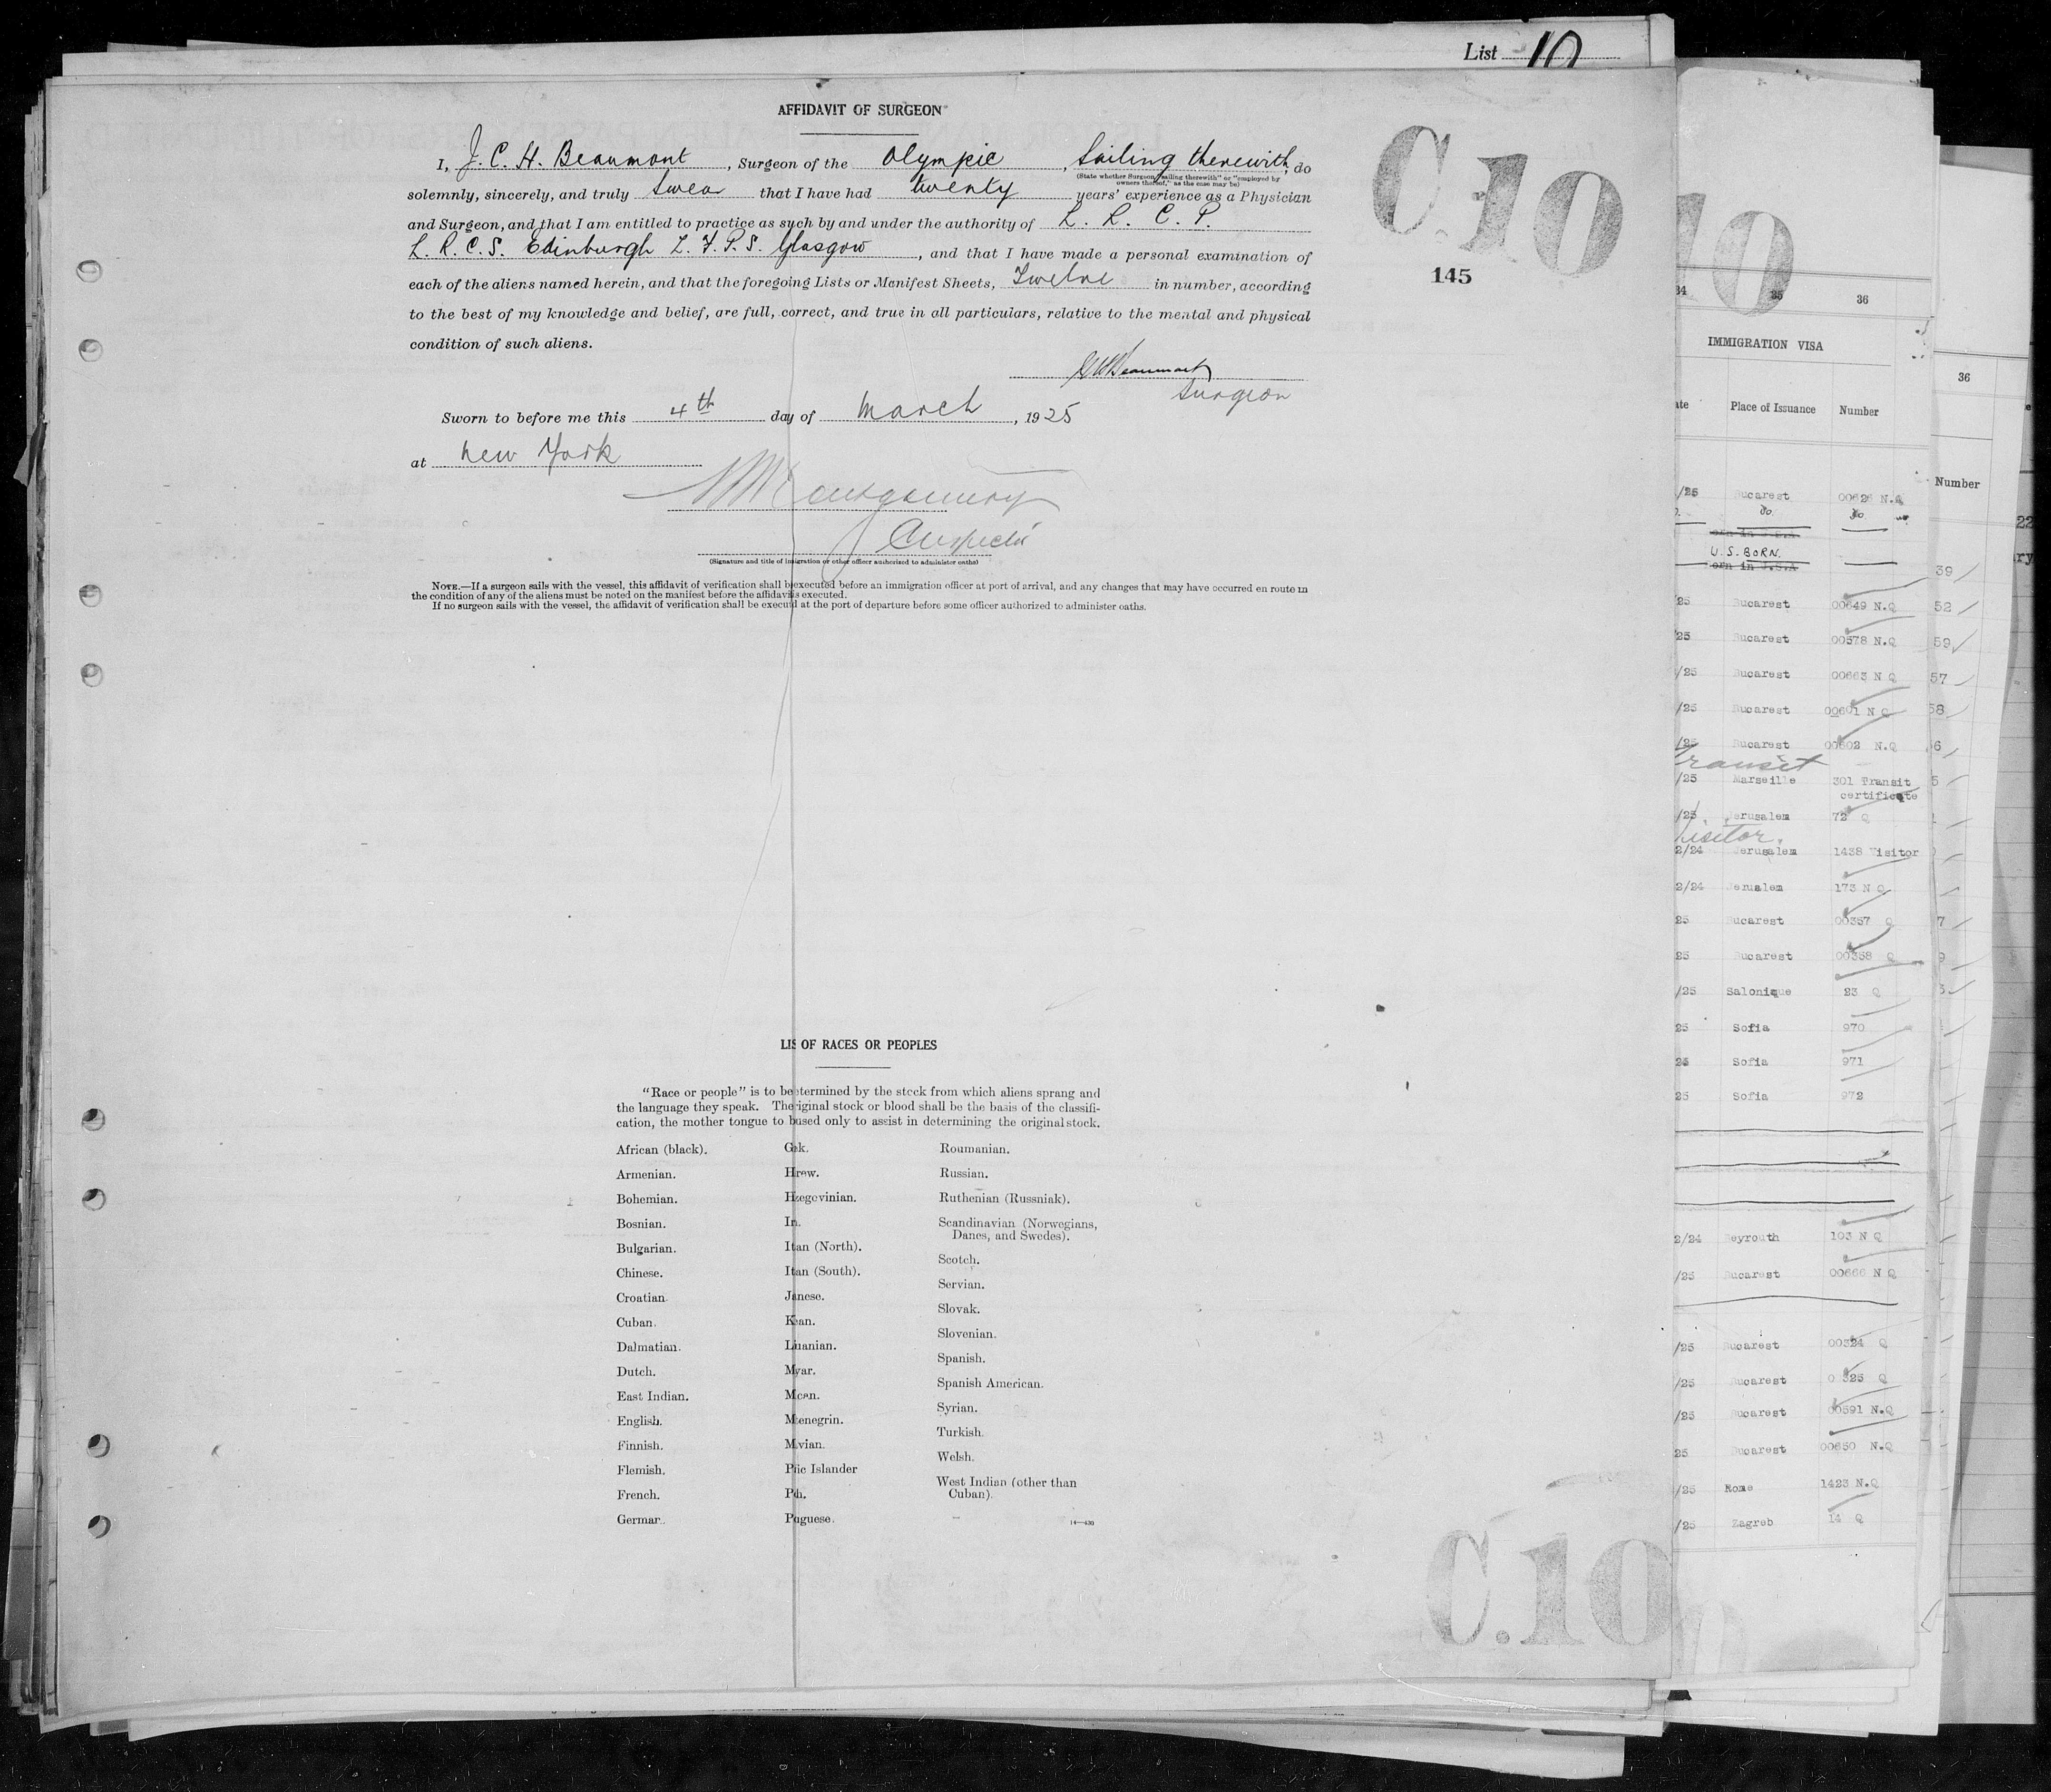 List 10
AFFIDAVIT OF SURGEON
I, J. C. H. Beaumont, Surgeon of the Olympic, Sailing therewith, do
(State whether Surgeon "sailing therewith" or "employed by
owners thereof," as the case may be)
solemnly, sincerely, and truly swear that I have had twenty years' experience as a Physician
and Surgeon, and that I am entitled to practice as such by and under the authority of L. R. C. P.
L. R. C. S. Edinburgh L. F. P. S. Glasgow, and that I have made a personal examination of
each of the aliens named herein, and that the foregoing Lists or Manifest Sheets, Twelve in number, according
to the best of my knowledge and belief, are full, correct, and true in all particulars, relative to the mental and physical
condition of such aliens.
Beaumont
Surgeon
Sworn to before me this 4th day of March, 1925
at New York
Montgomery
(Signature and title of imigration or other officer authorized to administer oaths)
NOTE.—If a surgeon sails with the vessel, this affidavit of verification shall b executed before an immigration officer at port of arrival, and any changes that may have occurred en route in
the condition of any of the aliens must be noted on the manifest before the affidavi is executed.
If no surgeon sails with the vessel, the affidavit of verification shall be execut at the port of departure before some officer authorized to administer oaths.
C.10
145
LIS OF RACES OR PEOPLES
"Race or people" is to be etermined by the stock from which aliens sprang and
the language they speak. The riginal stock or blood shall be the basis of the classifi-
cation, the mother tongue to b used only to assist in determining the original stock.
African (black).
Armenian.
Bohemian.
Bosnian.
Bulgarian.
Chinese.
Croatian.
Cuban.
Dalmatian.
Dutch.
East Indian.
English.
Finnish.
Flemish.
French.
German.
G ek.
H rew.
H zegovinian.
Ir .
It an (North).
It an (South).
J nese.
K an.
L uanian.
M yar.
M can.
M tenegrin.
M vian.
P ific Islander
P h.
P uguese.
Roumanian.
Russian.
Ruthenian (Russniak).
Scandinavian (Norwegians,
Danes, and Swedes).
Scotch.
Servian.
Slovak.
Slovenian.
Spanish.
Spanish American.
Syrian.
Turkish.
Welsh.
West Indian (other than
Cuban).
14—430
C.10
10
34 35 36
IMMIGRATION VISA
ate Place of Issuance Number
/25 Bucarest 00626 N.Q
do do
U.S. BORN.
orn in U.S.A
25 Bucarest 00649 N.Q
/25 Bucarest 00578 N.Q
/25 Bucarest 00663 N Q
/25 Bucarest 00601 N Q
/25 Bucarest 00602 N.Q
Transit
/25 Marseille 301 Transit
certificate
/25 Jerusalem 72 Q
Visitor.
2/24 Jerusalem 1438 Visitor
2/24 Jerualem 173 N Q
25 Bucarest 00357 Q
25 Bucarest 00358 Q
/25 Salonique 23 Q
25 Sofia 970
25 Sofia 971
25 Sofia 972
2/24 Beyrouth 103 N Q
/25 Bucarest 00666 N Q
/25 Bucarest 00324 Q
/25 Bucarest 0 325 Q
/25 Bucarest 00591 N.Q
25 Bucarest 00650 N.Q
/25 Rome 1423 N.Q
/25 Zagreb 14 Q
36
Number
39
52
59
57
58
6
5
7
9
22
ry